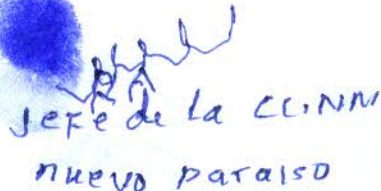 Jefe de la CC.NN
nuevo paraiso